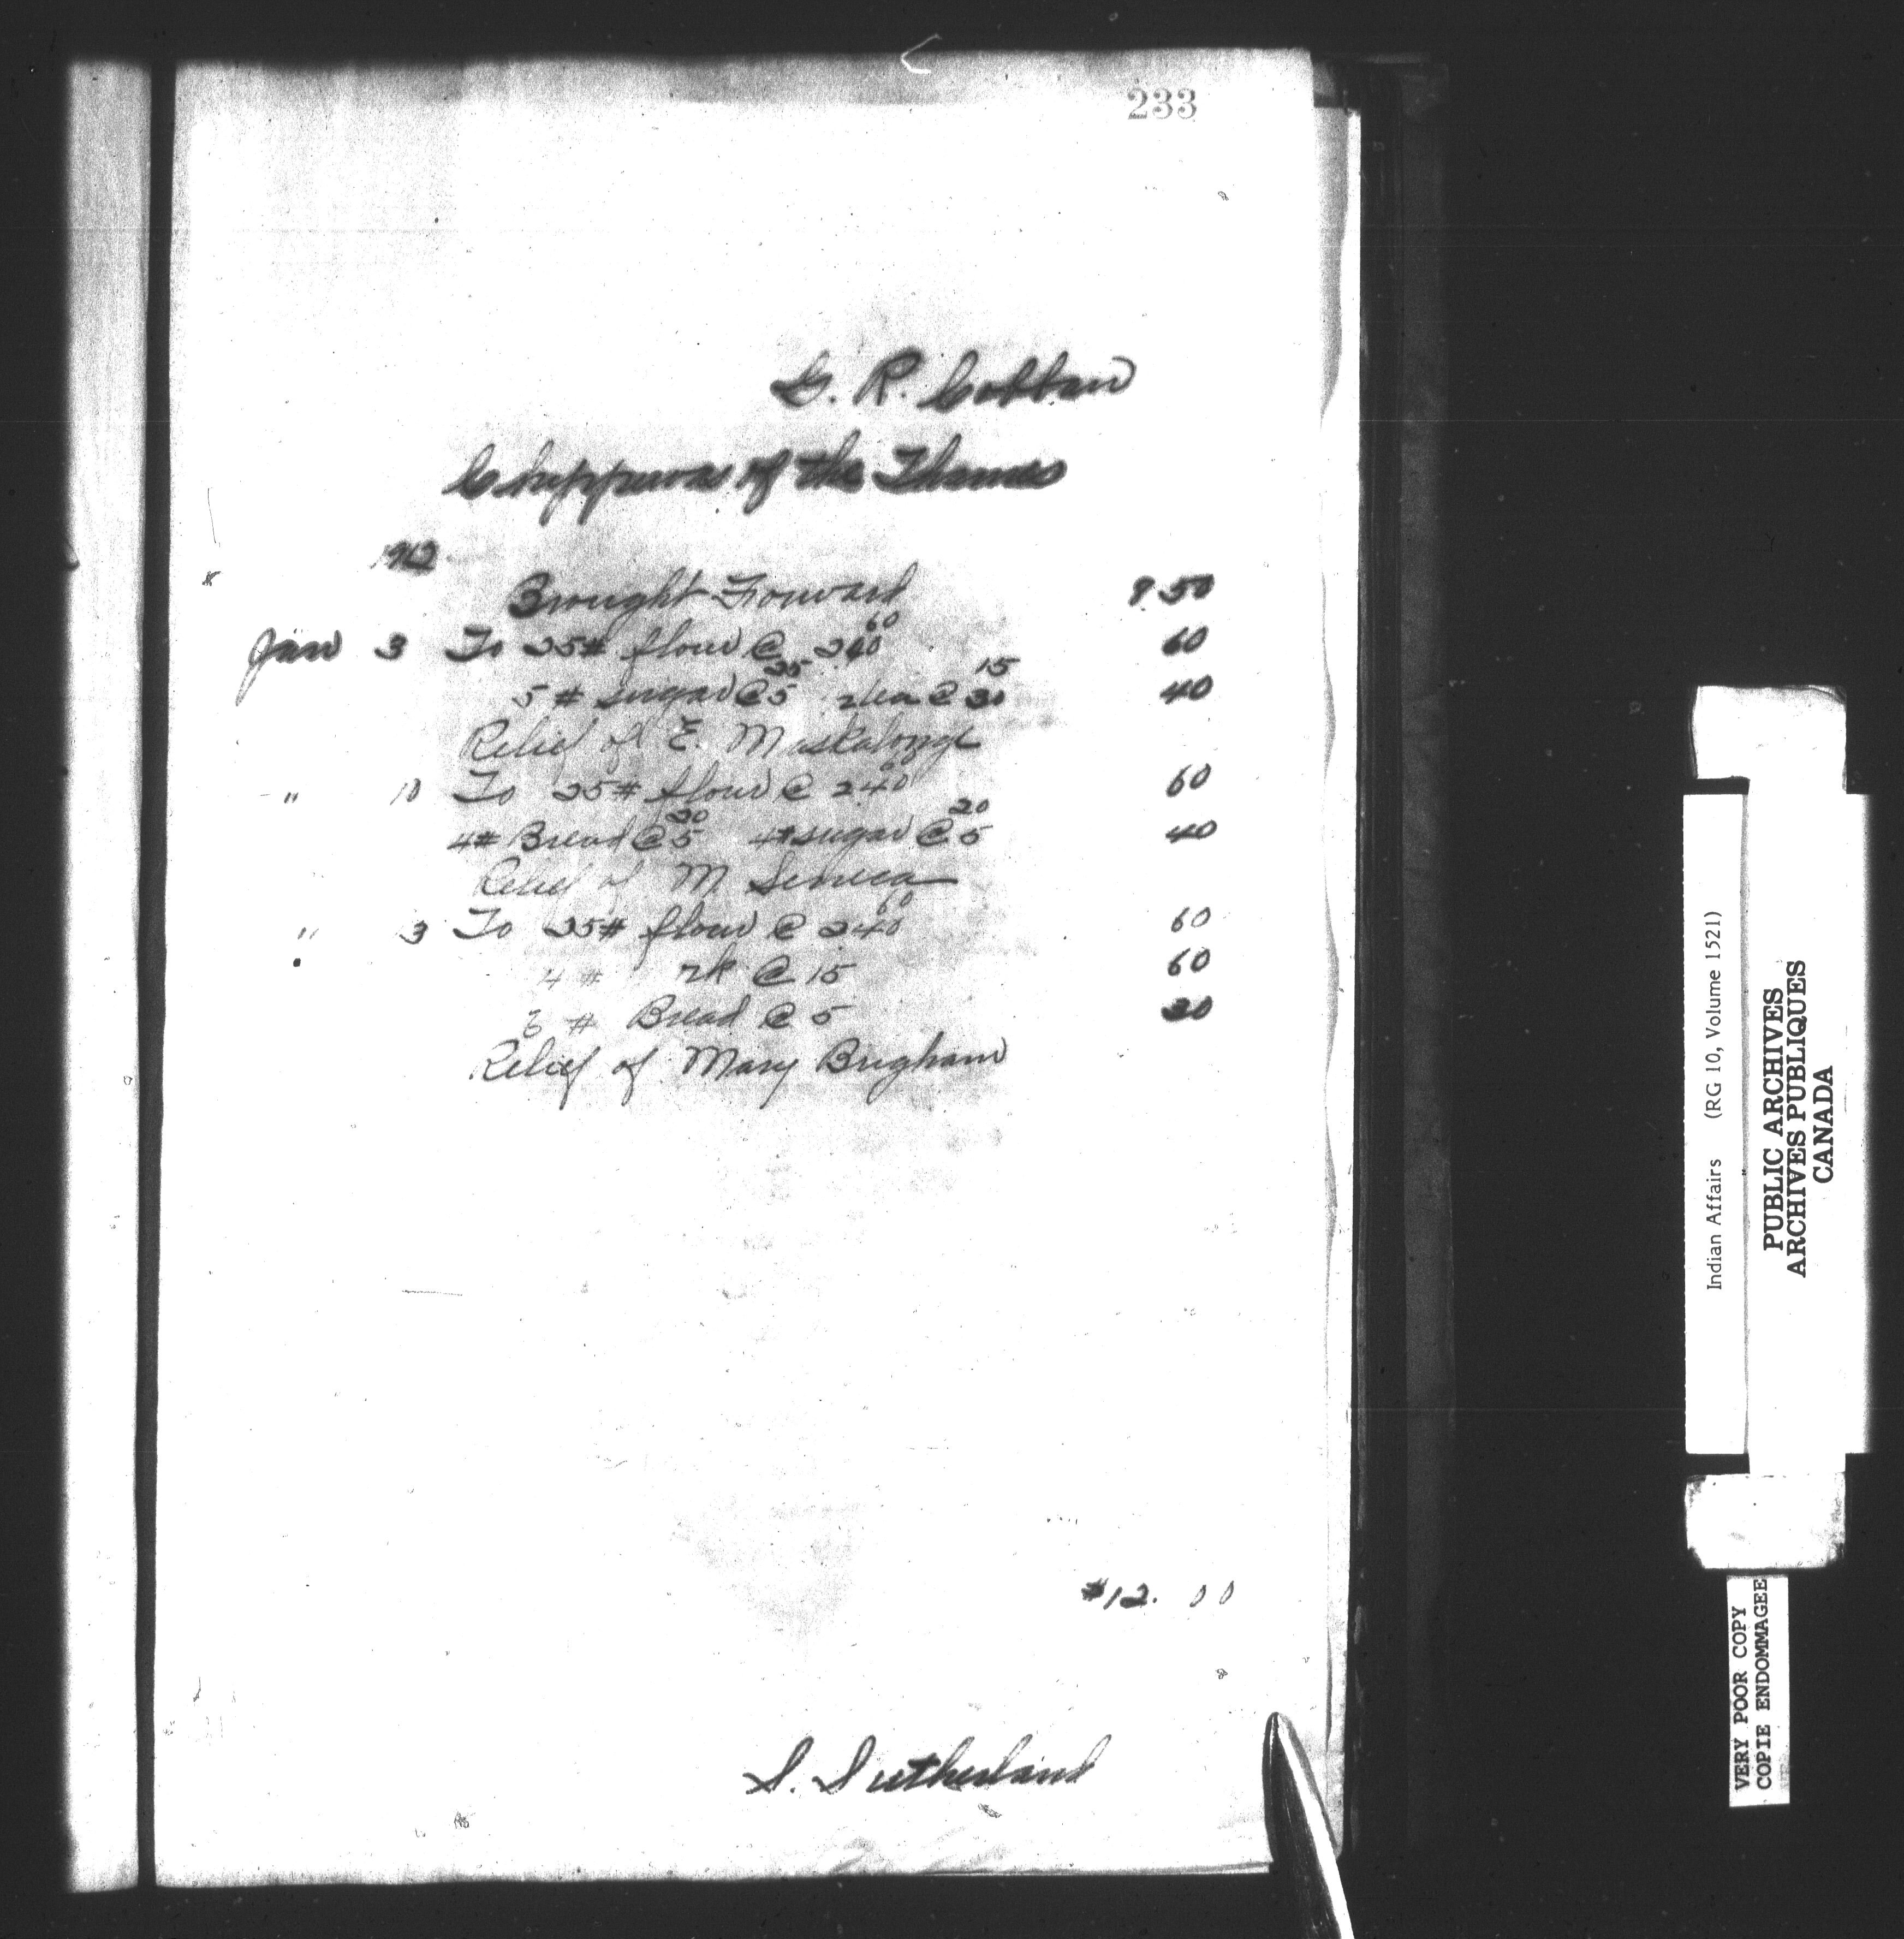 233
G. R. Cottam
Chippewas of the Thames
1912
Brought Forward 8 50
60
Jan 3 To 25# flour @ 240 60
25 15
5# sugar @ 5 tea @ 30 40
Relief of E. Maskalonge
60
" 10 To 25# flour @ 240 60
20 20
4# Bread @ 5 4# sugar @ 5 40
Relief of M Seneca
60
" 3 To 25# flour @ 240 60
4 # @ 15 60
6 # Bread @ 5 30
Relief of Mary Brigham
$12. 00
S. Sutherland
Indian Affairs (RG 10, Volume 1521)
PUBLIC ARCHIVES
ARCHIVES PUBLIQUES
CANADA
VERY POOR COPY
COPIE ENDOMMAGEE